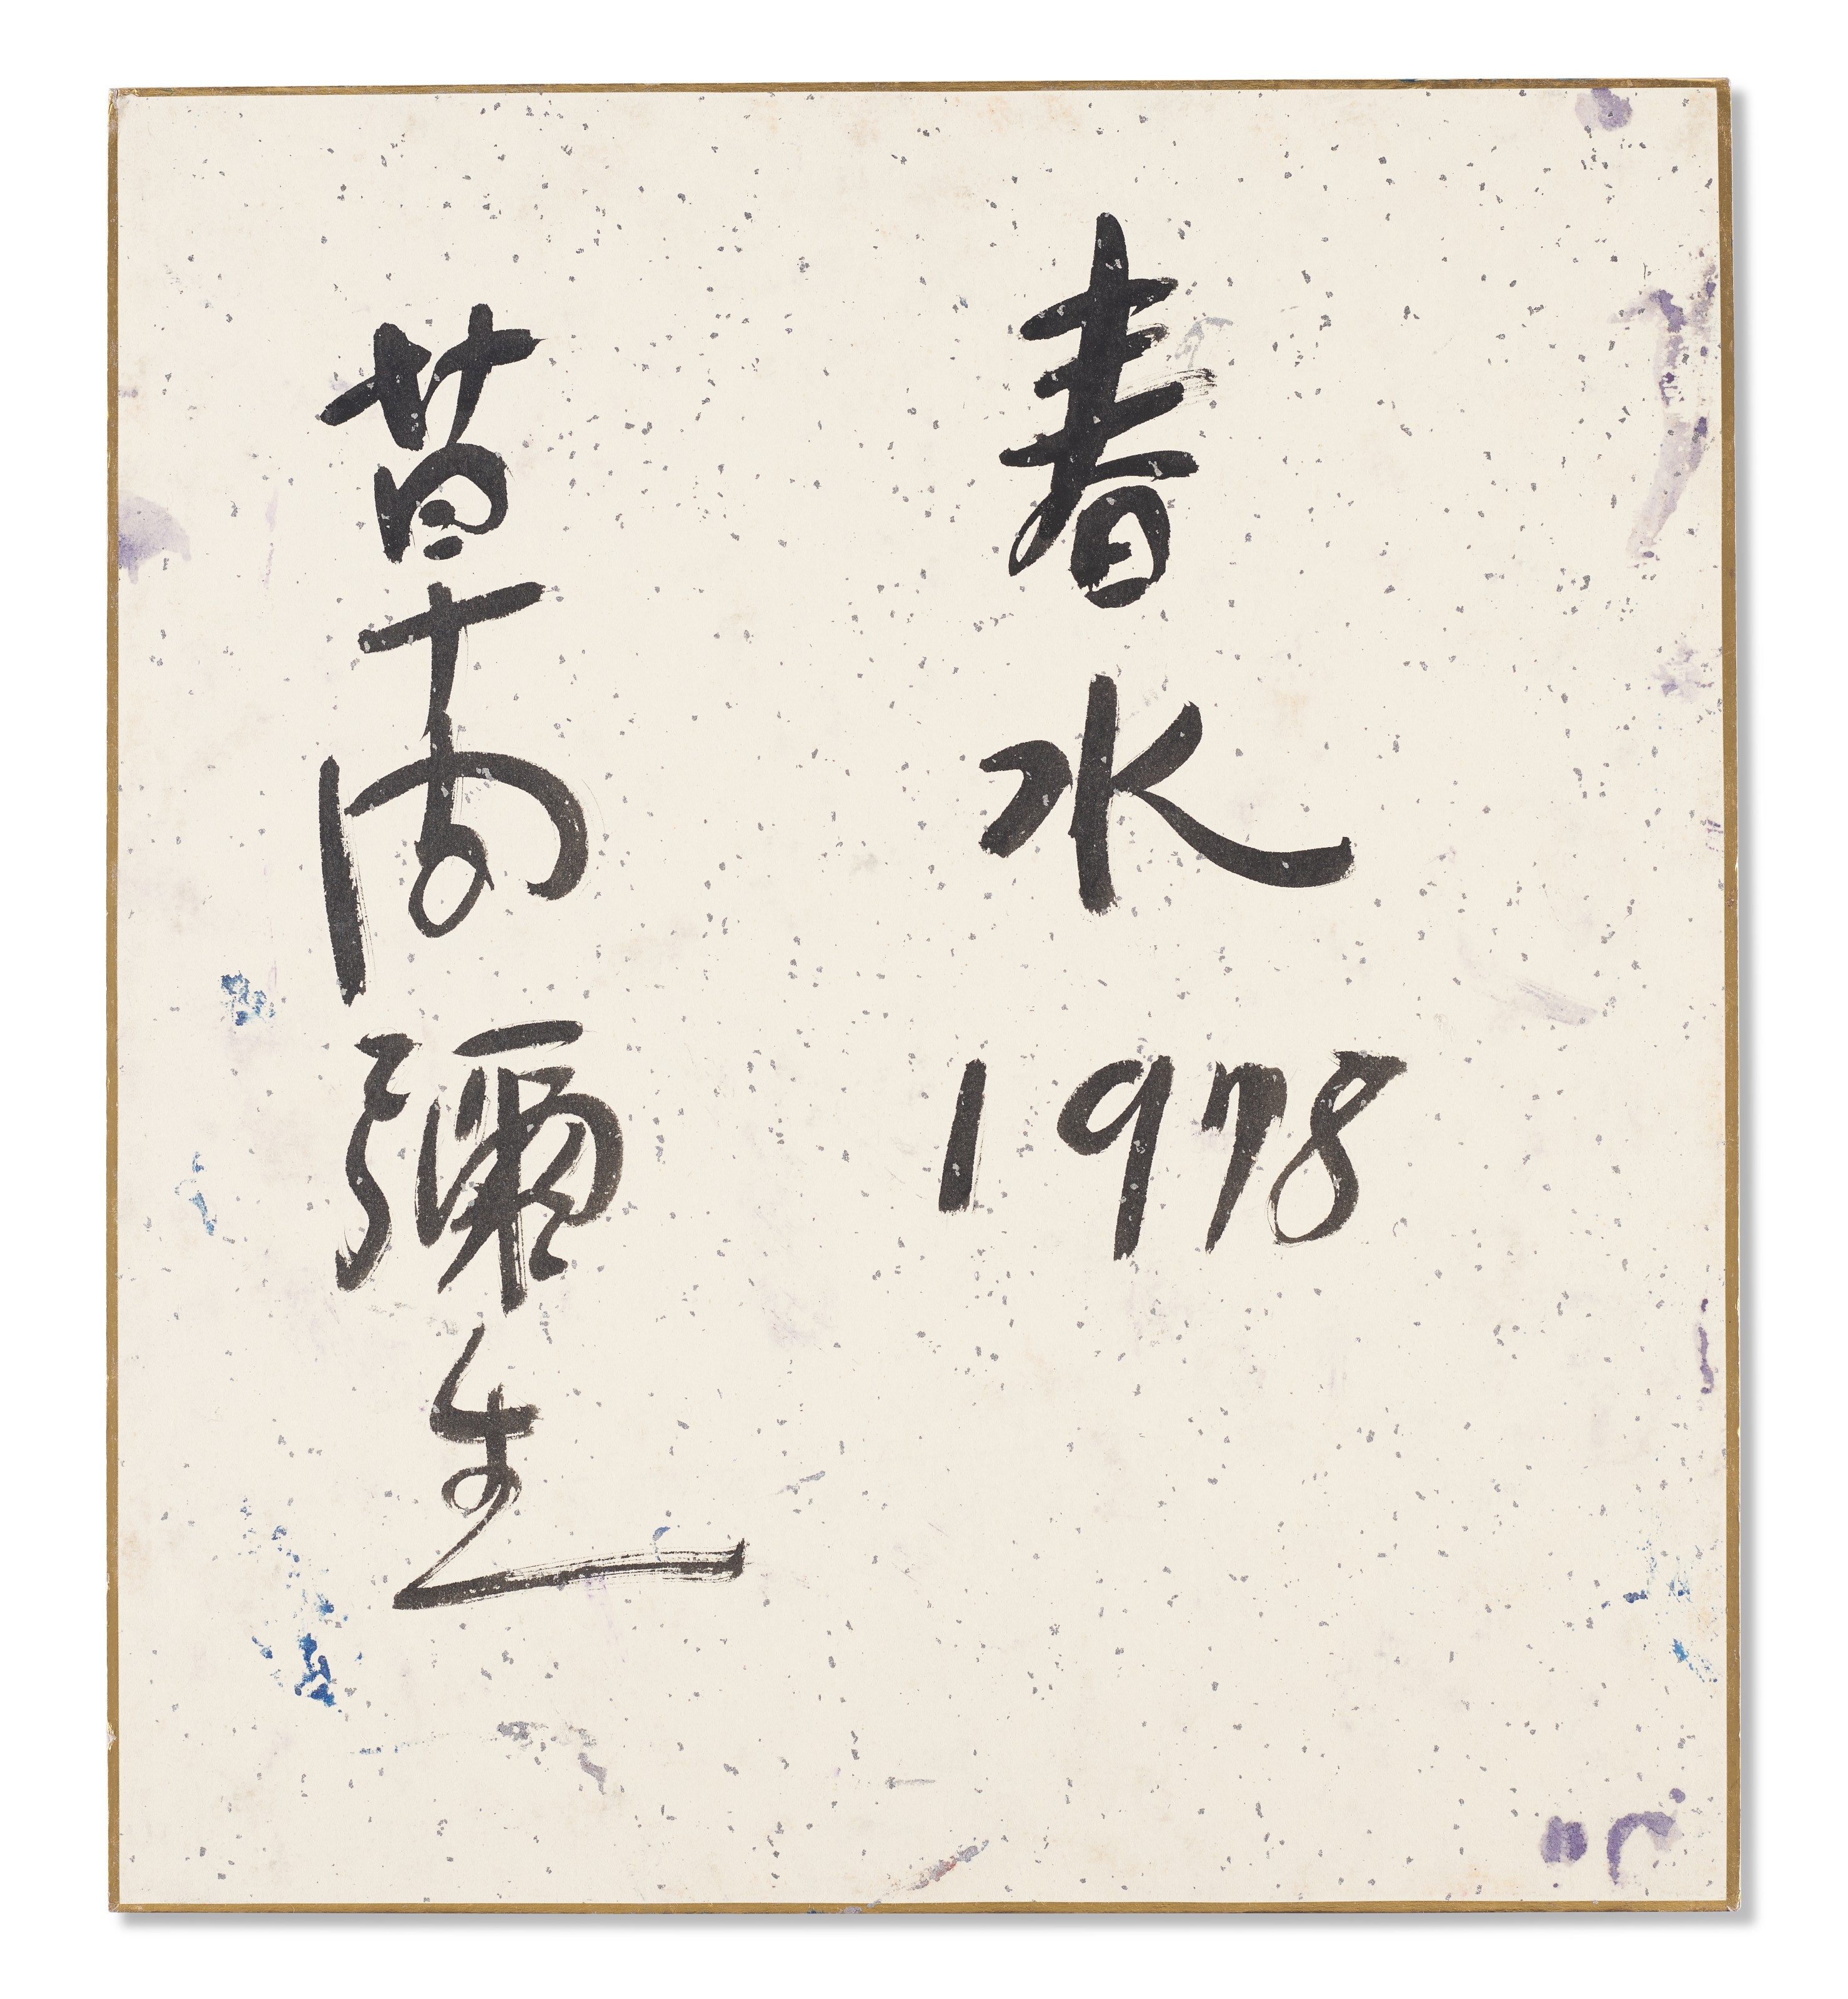 春水
1978
草間彌生